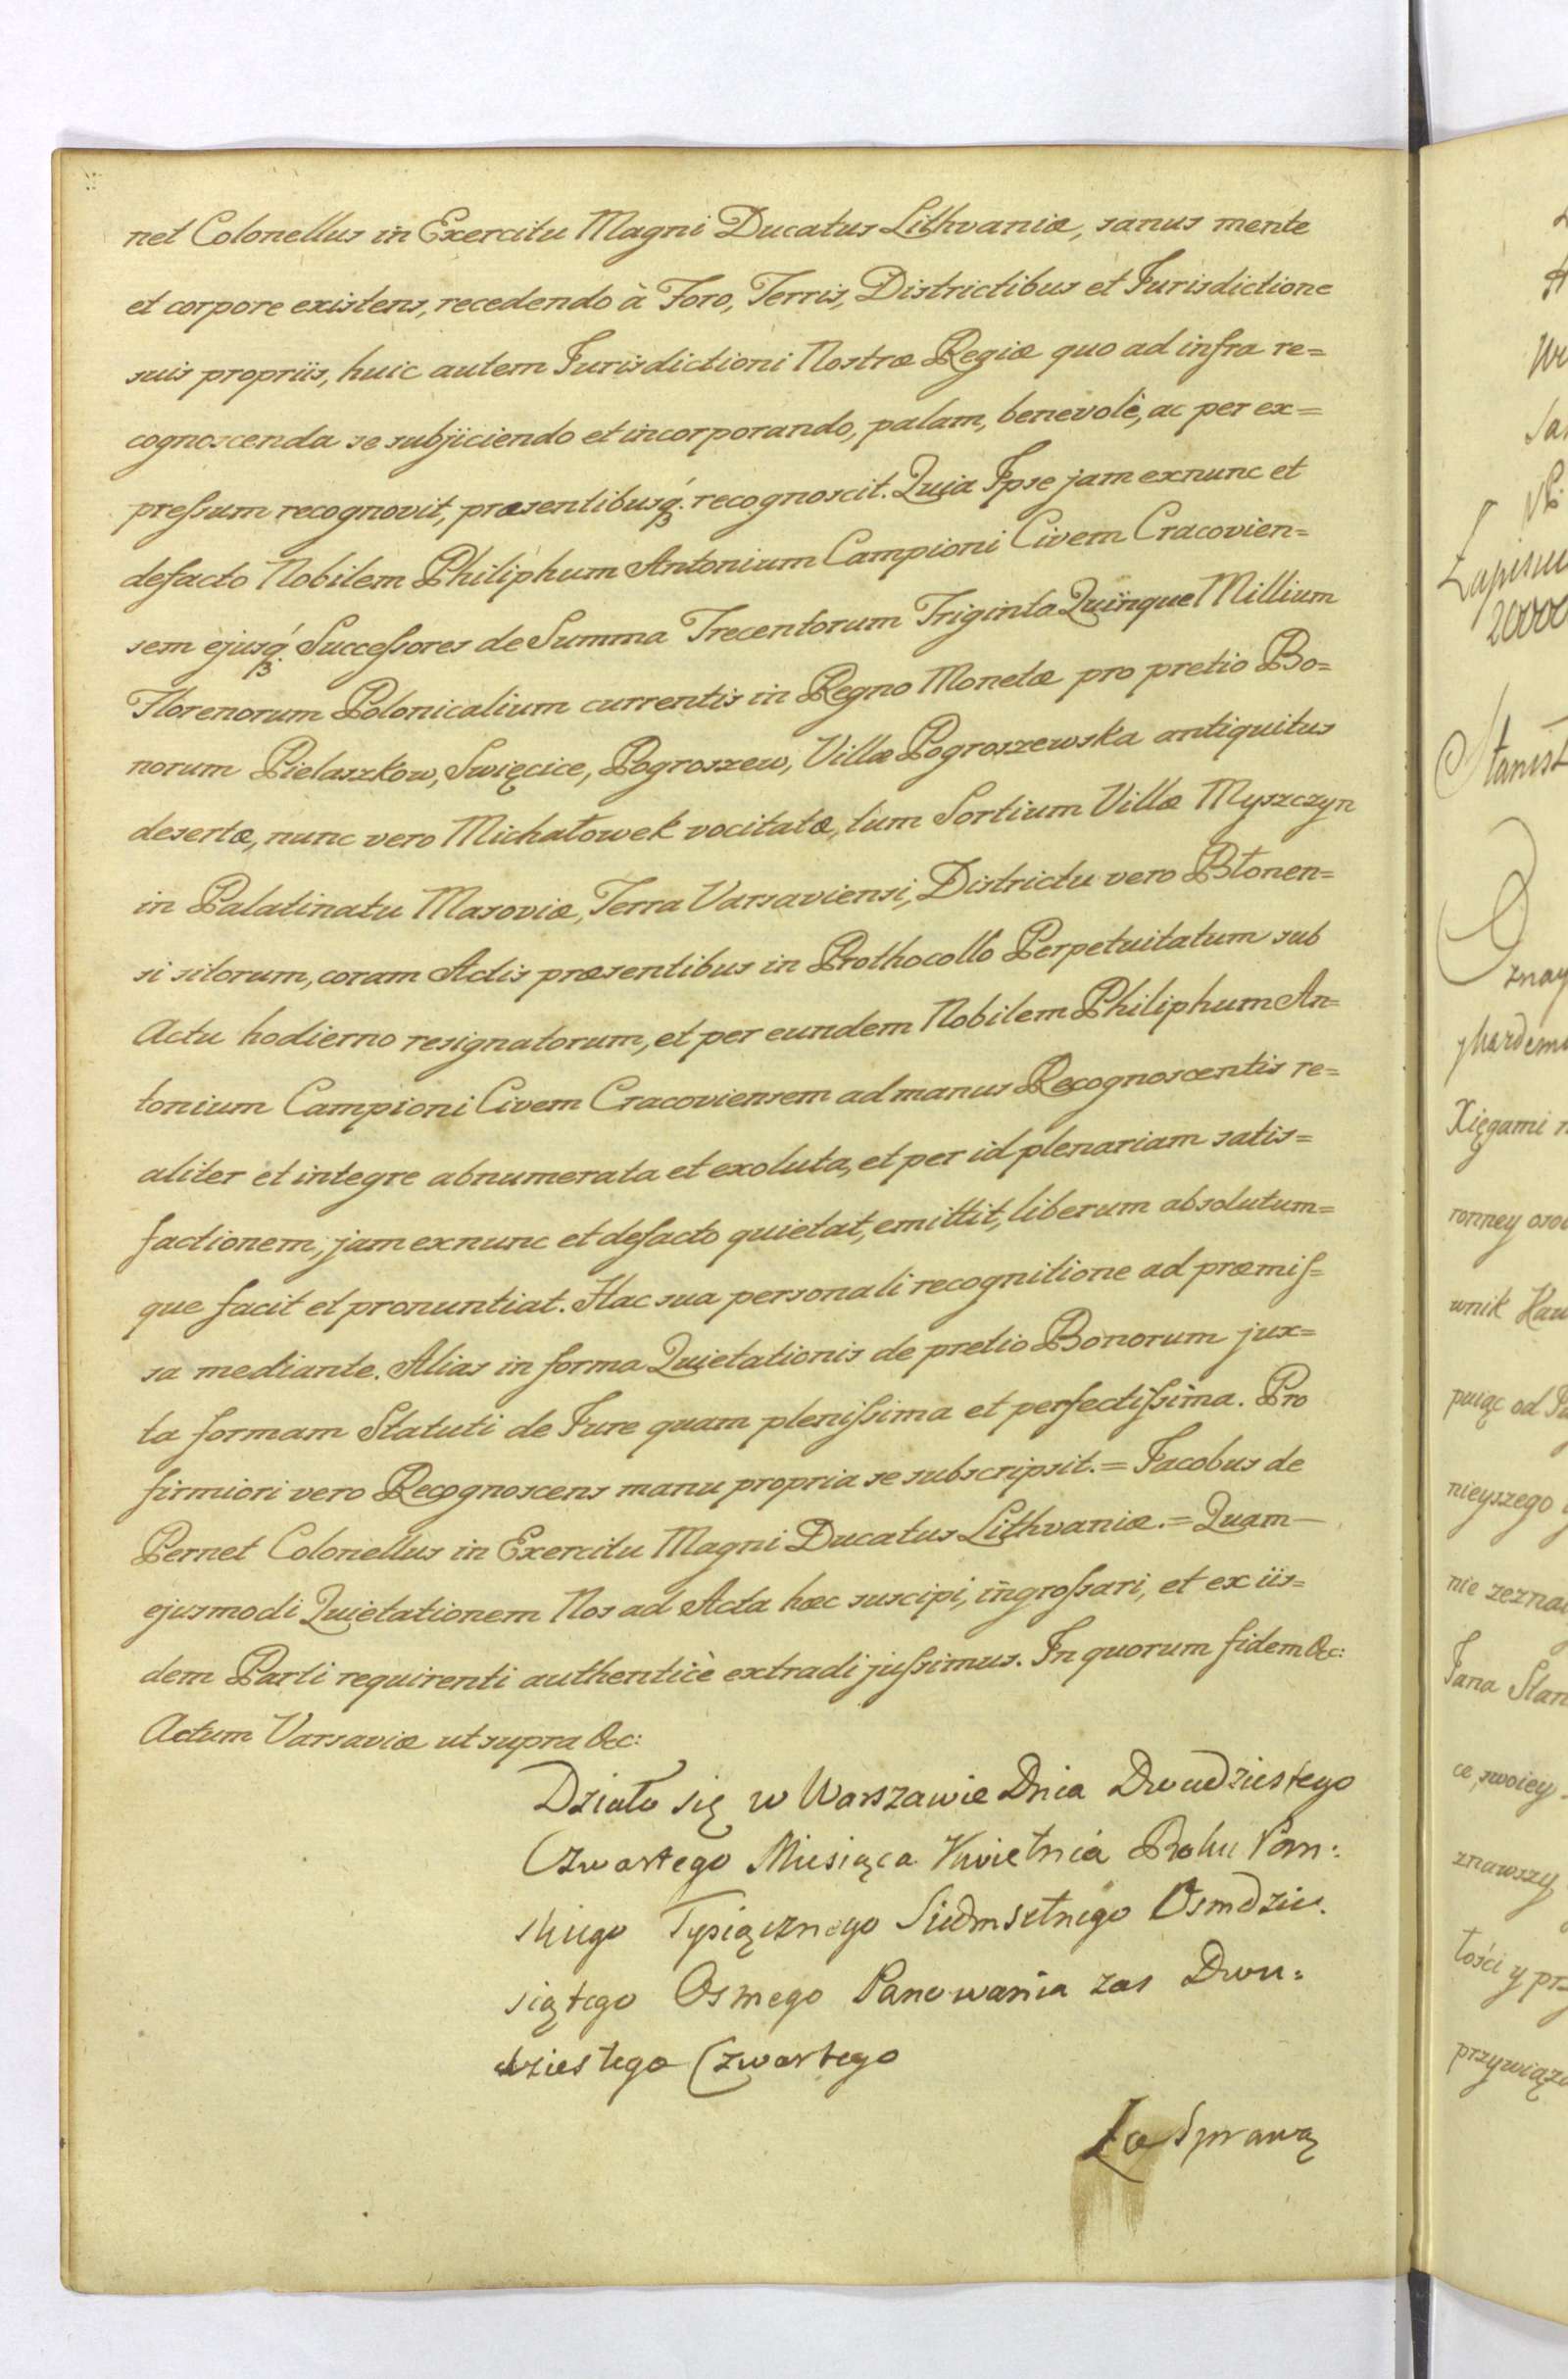 net Colonellus in Exercitu Magni Ducatus Lithvaniæ, sanus mente
et corpore existens, recedendo à Foro, Terris, Districtibus et Jurisdictione
suis propriis, huic autem Jurisdictioni Nostræ Regiæ quo ad infra re=
cognoscenda se subjiciendo et incorporando, palam, benevolè, ac per ex=
preſsum recognovit, præsentibusq́ꝫ recognoscit. Quia Ipse jam exnunc et
defacto Nobilem Philiphum Antonium Campioni Civem Cracovien=
sem ejusq́ꝫ Succeſsores de Summa Trecentorum Triginta Quinque Millium
Florenorum Polonicalium currentis in Regno Monetæ pro pretio Bo=
norum Pielaszkow, Swięcice, Pogroszew, Villæ Pogroszewska antiquitus
desertæ, nunc vero Michałowek vocitatæ, tum Sortium Villæ Myszczyn
in Palatinatu Masoviæ, Terra Varsaviensi, Districtu vero Błonen=
si sitorum, coram Actis præsentibus in Prothocollo Perpetuitatum sub
Actu hodierno resignatorum, et per eundem Nobilem Philiphum An=
tonium Campioni Civem Cracoviensem ad manus Recognoscentis re=
aliter et integre abnumerata et exoluta, et per id plenariam satis=
factionem, jam exnunc et defacto quietat, emittit, liberum absolutum=
que facit et pronuntiat. Hac sua personali recognitione ad præmiſ=
sa mediante. Alias in forma Quietationis de pretio Bonorum jux=
ta formam Statuti de Jure quam pleniſsima et perfectiſsima. Pro
firmiori vero Recognoscens manu propria se subscripsit. = Jacobus de
Pernet Colonellus in Exercitu Magni Ducatus Lithvaniæ. = Quam—
ejusmodi Quietationem Nos ad Acta hæc suscipi, ingroſsari, et ex iis=
dem Parti requirenti authenticè extradi juſsimus. In quorum fidem &c:
Actum Varsaviæ ut supra &c:
Działo się w Warszawie Dnia Dwudziestego
Czwartego Miesiąca Kwietnia Roku Pan:
skiego Tysiącznego Siedmsetnego Osmdzie.
siątego Osmego Panowania zas Dwu=
dziestego Czwartego
Za Sprawą
Zapisu
20000
Stanisł
Oznay
Xięgami
ronney
wnik
puiąc od
nieyszego
nie zezna
Jana Stan
ce, swoiey
znawszy
łości y prz
przywiąz